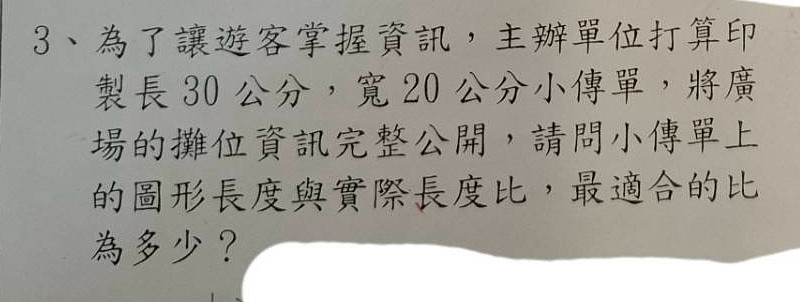 3、為了讓遊客掌握資訊，主辦單位打算印
製長 30 公分，寬 20 公分小傳單，將廣
場的攤位資訊完整公開，請問小傳單上
的圖形長度與實際長度比，最適合的比
為多少？